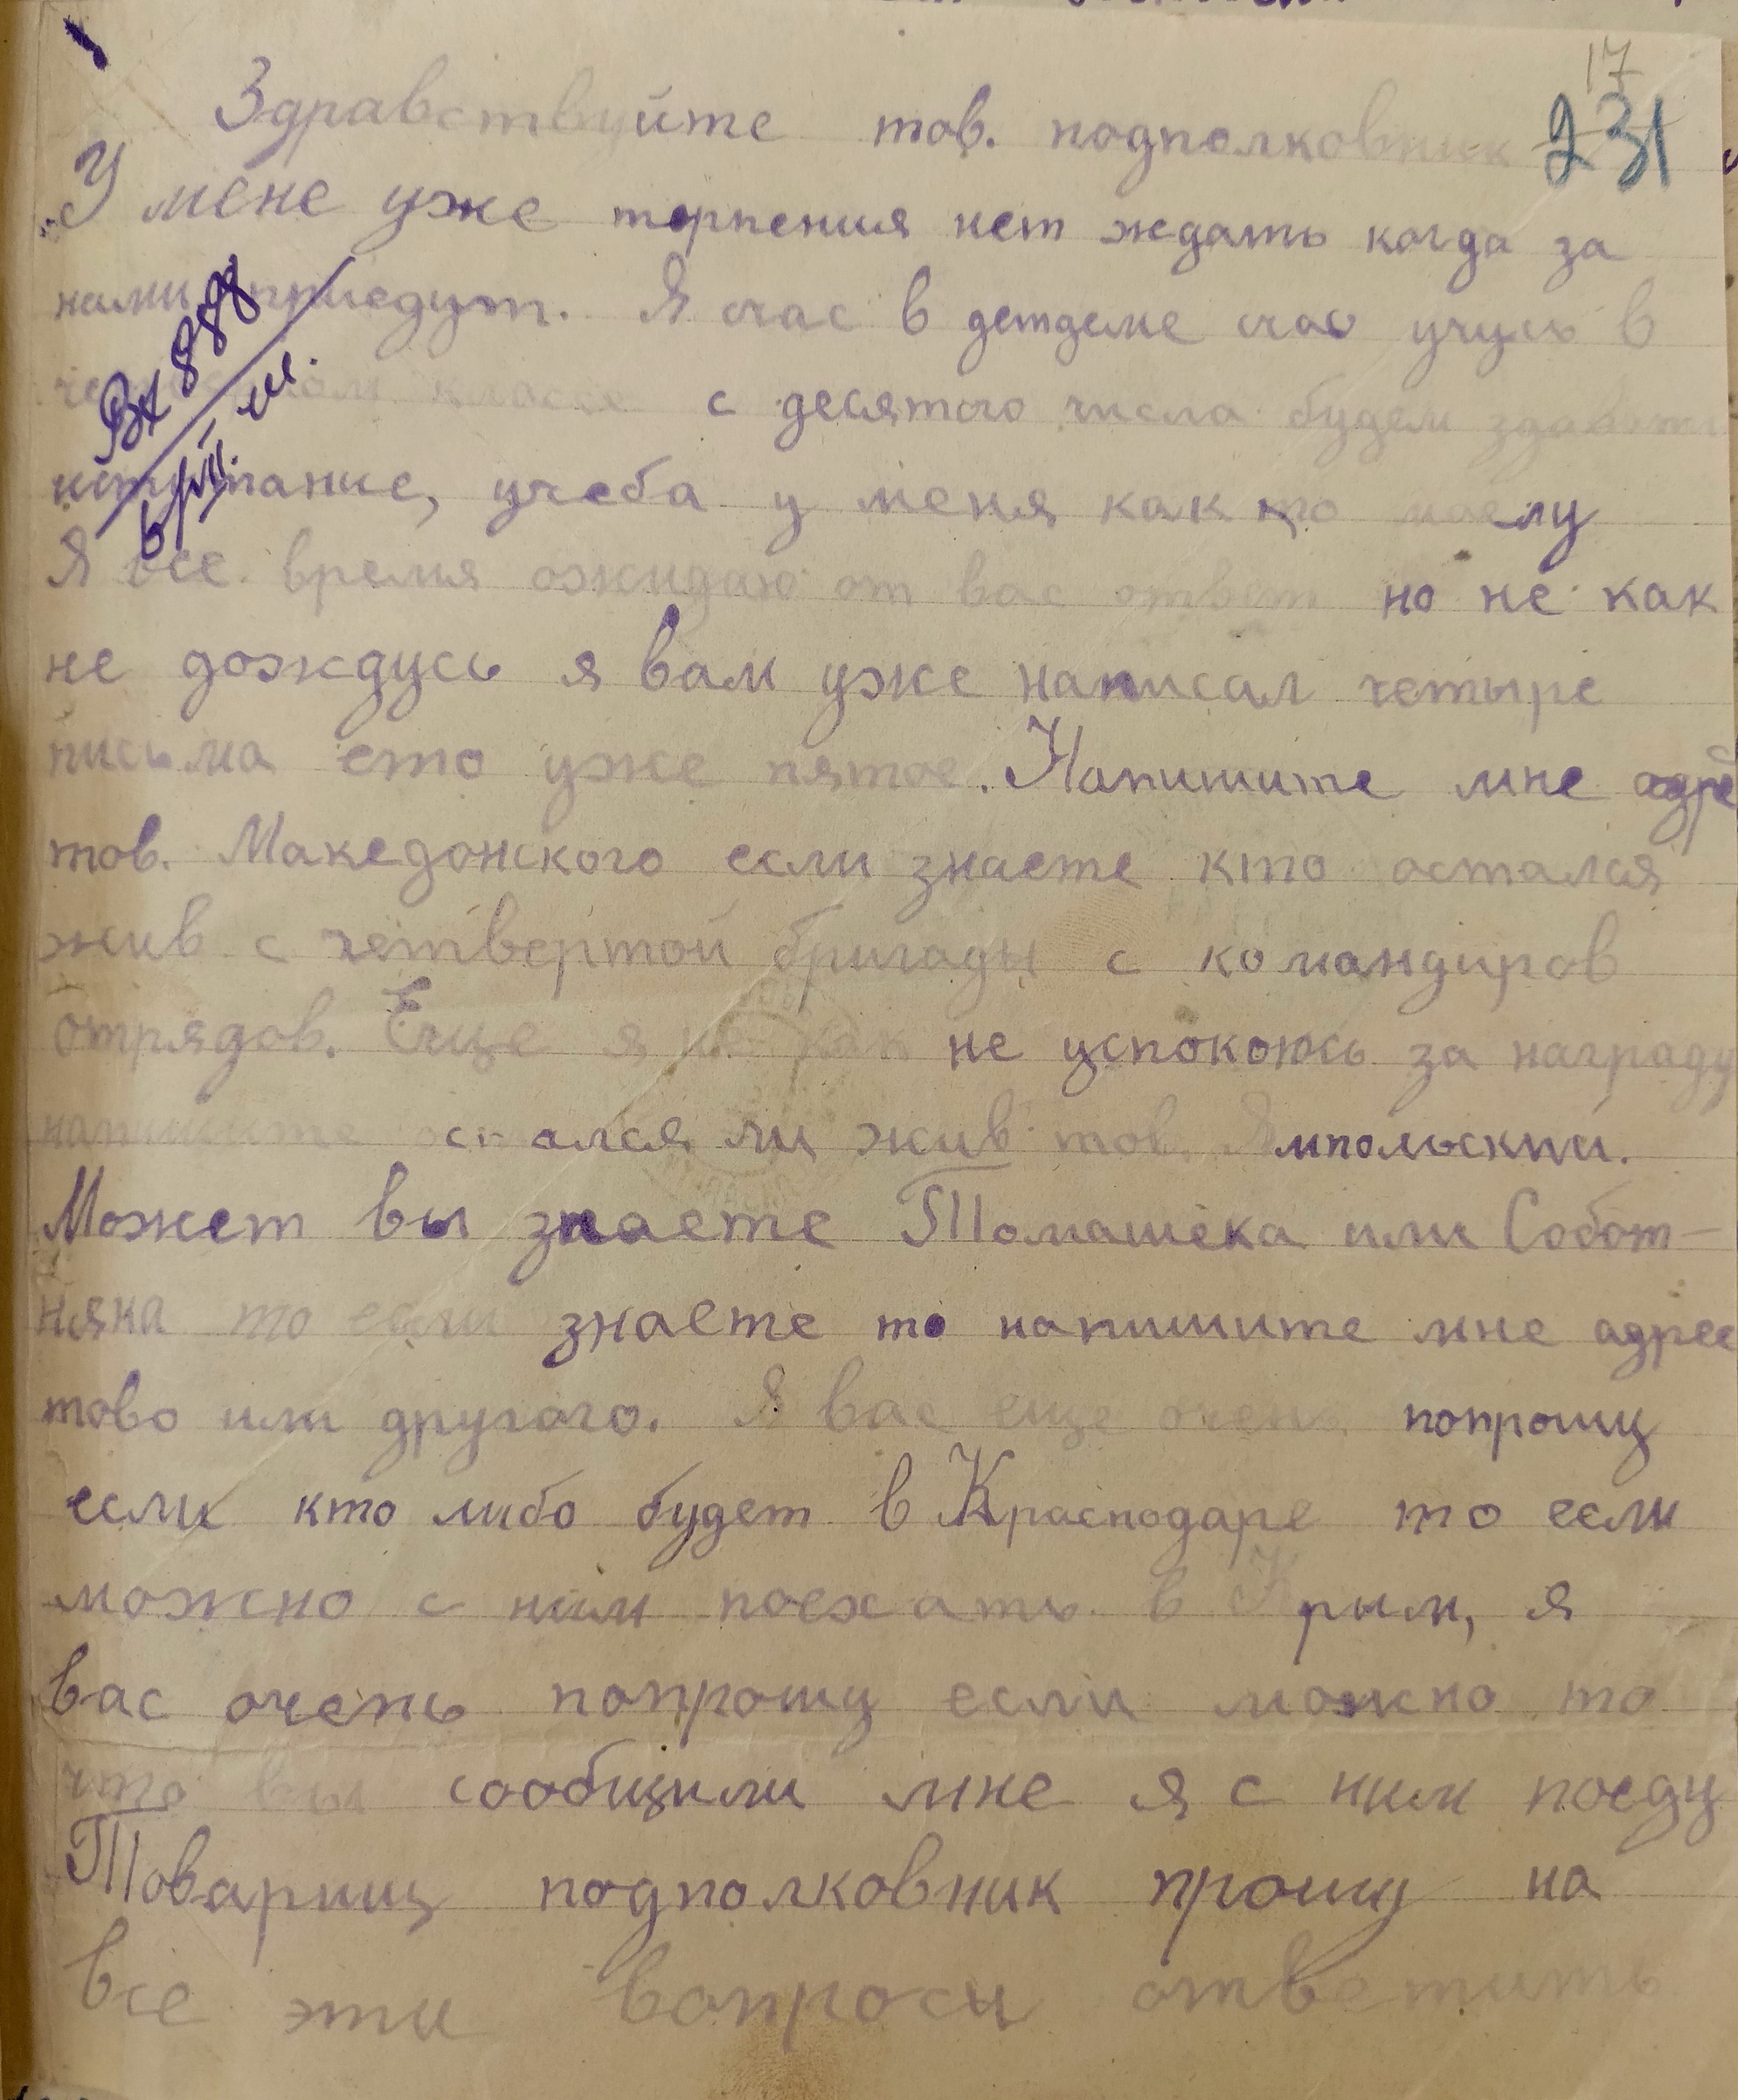 17
231
Здравствуйте тов. подполковник
У мене уже терпения нет ждать когда за
нами приедут. Я счас в детдоме счас учусь в
классе с десятого числа будем здавать
Вх 888
учеба у меня как то
Я все время ожидаю от вас ответ но не как
не дождусь я вам уже написал четыре
письма ето уже пятое. Напишите мне адре
тов. Македонского если знаете кто остался
жив с четвертой бригады с командиров
отрядов. Еще я не как не успокоюсь за награду
напишите остался ли жив тов. Ямпольский.
Может вы знаете Томашека или Собот-
няка то если знаете то напишите мне адрес
тово или другого. Я вас еще очень попрошу
если кто либо будет в Краснодаре то если
можно с ним поехать в Крым, я
вас очень попрошу если можно то
что вы сообщили мне я с ним поеду
Товарищ подполковник прошу на
все эти вопросы ответить